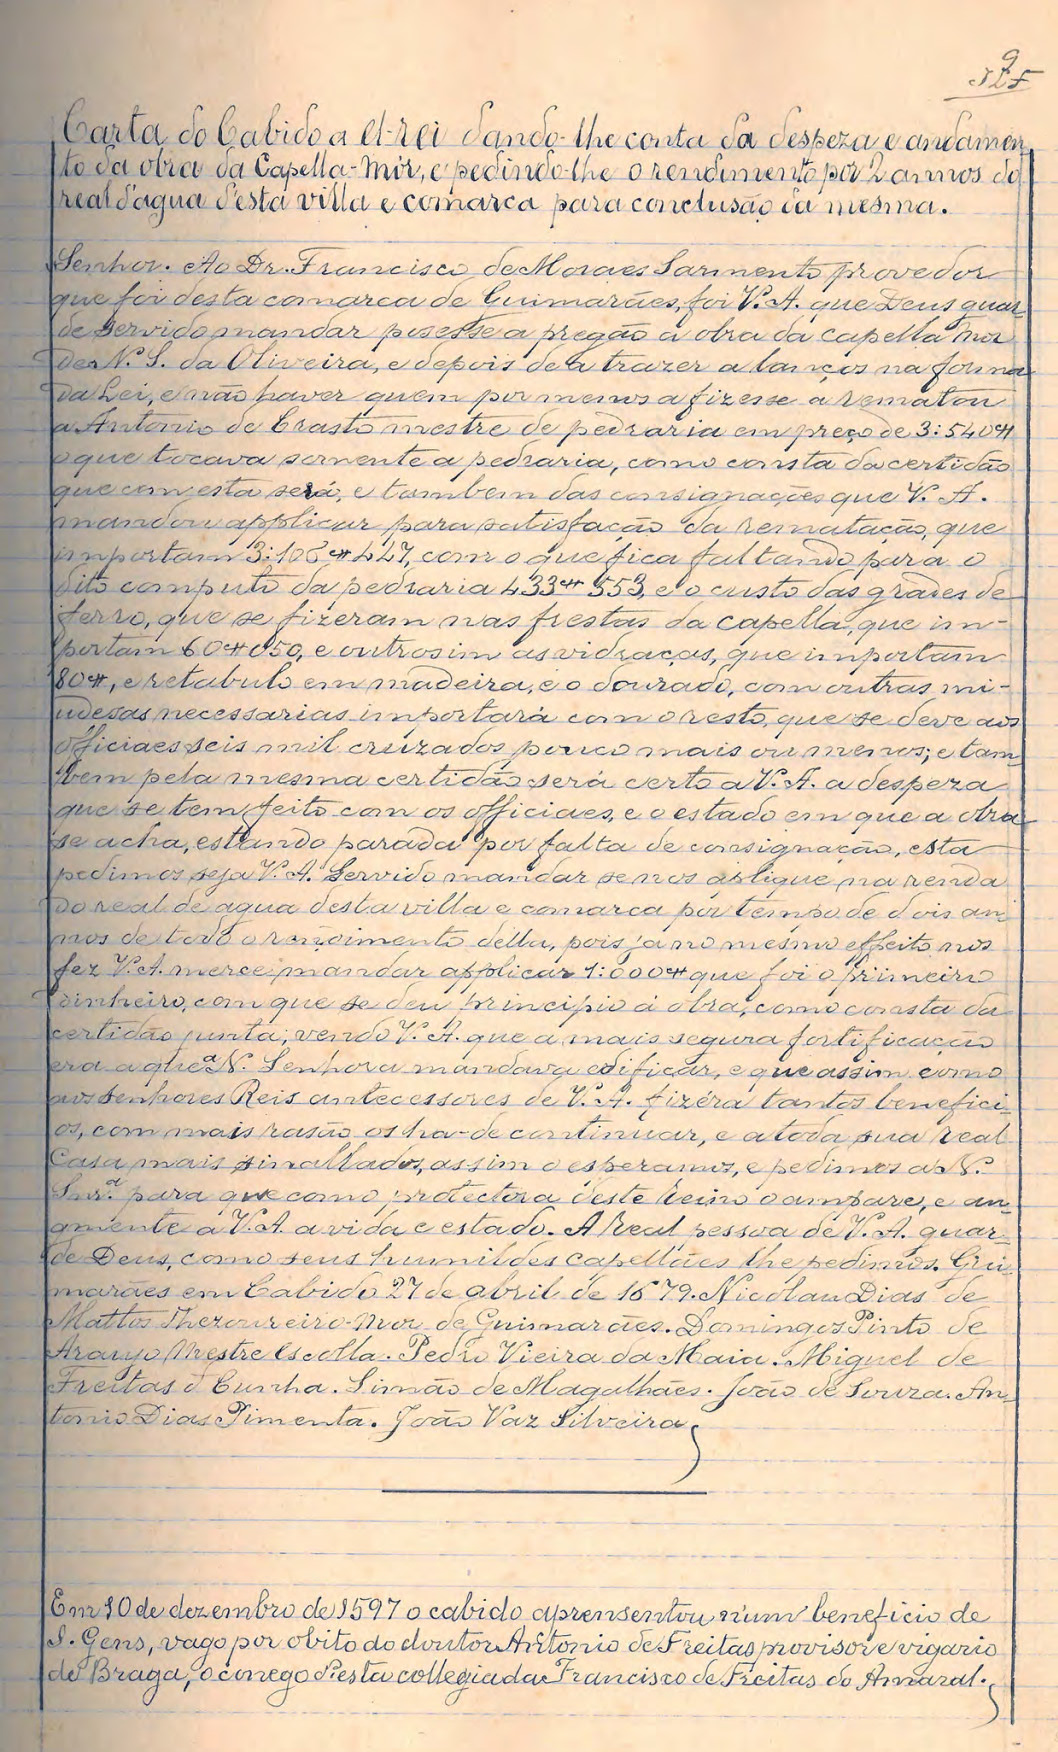 9
Carta do Cabido a el-rei dando-lhe conta da despeza e andamen
to da obra da Capella-Mór, e pedindo-lhe o rendimento por 2 annos do
real d'agua d'esta villa e comarca para conclusão da mesma.
Senhor. Ao Dr. Francisco de Moraes Sarmento provedor
que foi desta comarca de Guimarães, foi V. A. que Deus guar
de servido mandar posesse a pregão a obra da capella mor
de N. S. da Oliveira, e depois de a trazer a lanços na forma
da Lei, e não haver quem por menos a fizesse a rematou
a Antonio de Crasto mestre de pedraria em preço de 3:540$
o que tocava somente a pedraria, como consta da certidão
que com esta será, e tambem das consignações que V. A.
mandou applicar para satisfação da rematação, que
importam 3:106$447, com o que fica faltando para o
dito computo da pedraria 433$553, e o custo das grades de
ferro, que se fizeram nas frestas da capella, que im-
portam 60$050, e outrosim as vidraças, que importam
80$, e retabulo em madeira, e o dourado, com outras mi-
udesas necessarias importará com o resto, que se deve aos
officiaes seis mil cruzados pouco mais ou menos; e tam
bem pela mesma certidão será certo a V. A. a despeza
que se tem feito com os officiaes, e o estado em que a obra
se acha, estando parada por falta de consignação, esta
pedimos seja V. A. Servido mandar se nos aplique na renda
do real de agua desta villa e comarca por tempo de dois an
nos de todo o rendimento della, pois já no mesmo effeito nos
fez V. A. merce mandar applicar 1:000$ que foi o primeiro
dinheiro, com que se deu principio á obra, como consta da
certidão junta; vendo V. A. que a mais segura fortificação
era a que a N. Senhora mandava edificar, e que assim como
aos Senhores Reis antecessores de V. A. fizéra tantos benefici-
os, com mais rasão os ha-de continuar, e a toda sua real
Casa mais sinallados, assim o esperamos, e pedimos a N.
Snrª para que como protectora deste Reino o ampare, e au
gmente a V. A. a vida e estado. A Real pessoa de V. A. guar-
de Deus, como seus humildes capellães lhe pedimos. Gui
marães em Cabido 27 de abril de 1679. Nicolau Dias de
Mattos Thezoureiro-Mor de Guimarães. Domingos Pinto de
Araujo Mestre Escolla. Pedro Vieira da Maia. Miguel de
Freitas d Cunha. Simão de Magalhães. João de Souza. An-
tonio Dias Pimenta. João Vaz Silveira
Em 10 de dezembro de 1597 o cabido aprensentou n'um beneficio de
S. Gens, vago por obito do doutor Antonio de Freitas provisor e vigario
de Braga, o conego d'esta collegiada Francisco de Freitas do Amaral.